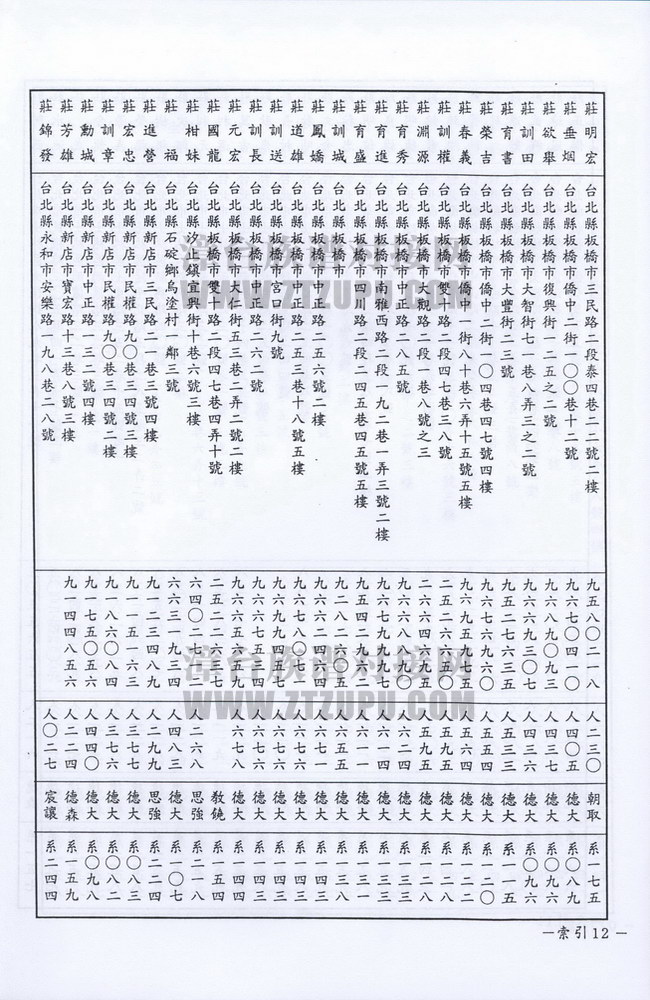 莊明宏 台北縣板橋市三民路二段泰四巷二二號二樓 九五八〇二一八 人二三〇 朝取 系一七五
莊垂烟 台北縣板橋市僑中二街一〇〇巷十二號 九六七〇四一〇 人四〇五 德大 系〇八九
莊欲舉 台北縣板橋市復興街一二五之二號 九六八九〇九三 人四三七 德大 系〇九六
莊訓田 台北縣板橋市大智街七一巷八弄三之二號 九六六九三〇七 人四三六 德大 系〇九六
莊育書 台北縣板橋市大豐街二三號 九五二七六三五 人五三三 德大 系一一五
莊榮吉 台北縣板橋市僑中二街一〇四巷四七號四樓 人五五四 德大 系一二〇
莊春義 台北縣板橋市僑中一街八十巷六弄十五號五樓 人五六四 德大 系一二二
莊訓權 台北縣板橋市雙十路二段四七巷三八號 人五九五 德大 系一二二
莊淵源 台北縣板橋市大觀路二段一巷八號之三 人五九五 德大 系一二八
莊育秀 台北縣板橋市中正路二八五號 人六二四 德大 系一二八
莊育進 台北縣板橋市南雅西路二段一九二巷一弄三號二樓 人六一四 德大 系一三三
莊育盛 台北縣板橋市四川路二段二四五巷四五號五樓 人六一一 德大 系一三一
莊訓城 台北縣板橋市 人六五五 德大 系一三八
莊鳳嬌 台北縣板橋市中正路二五六號二樓 人六七一 德大 系一四三
莊道雄 台北縣板橋市中正路二五三巷十八號五樓 人六七六 德大 系一四三
莊訓送 台北縣板橋市宮口街九號 人六七六 德大 系一四三
莊訓長 台北縣板橋市中正路二六二號 人六七七 德大 系一四三
莊元宏 台北縣板橋市大仁街五三巷二弄二號二樓 人六七八 德大 系一四四
莊國龍 台北縣板橋市雙十路二段四七巷四弄十號 教鐃 系二四五
莊柑妹 台北縣汐止鎮宜興街十巷六號三樓 六四〇二七二一 人二六八 思強 系二一八
莊福 台北縣石碇鄉烏塗村一鄰三號 六六三一九三四 人四八三 德大 系一〇七
莊進營 台北縣新店市三民路二一巷三號四樓 九一二三四八九 人二九九 思強 系二二四
莊宏忠 台北縣新店市民權路九〇巷三四號三樓 九一一五一六三 人三七六 德大 系〇八三
莊訓章 台北縣新店市民權路九〇巷三四號二樓 九一八六〇八四 人三七六 德大 系〇八二
莊勳城 台北縣新店市中正路一三二號四樓 九一七五〇五六 人四四〇 德大 系〇九八
莊芳雄 台北縣新店市寶宏路十三巷八號三樓 九一四四八五六 人二二四 德森 系一五九
莊錦發 台北縣永和市安樂路一九八巷二八號 人〇二七 宸讓 系二四四
漳台族譜对接网
WWW.ZTZUPU.COM
漳台族譜对接网
WWW.ZTZUPU.COM
－索引12－